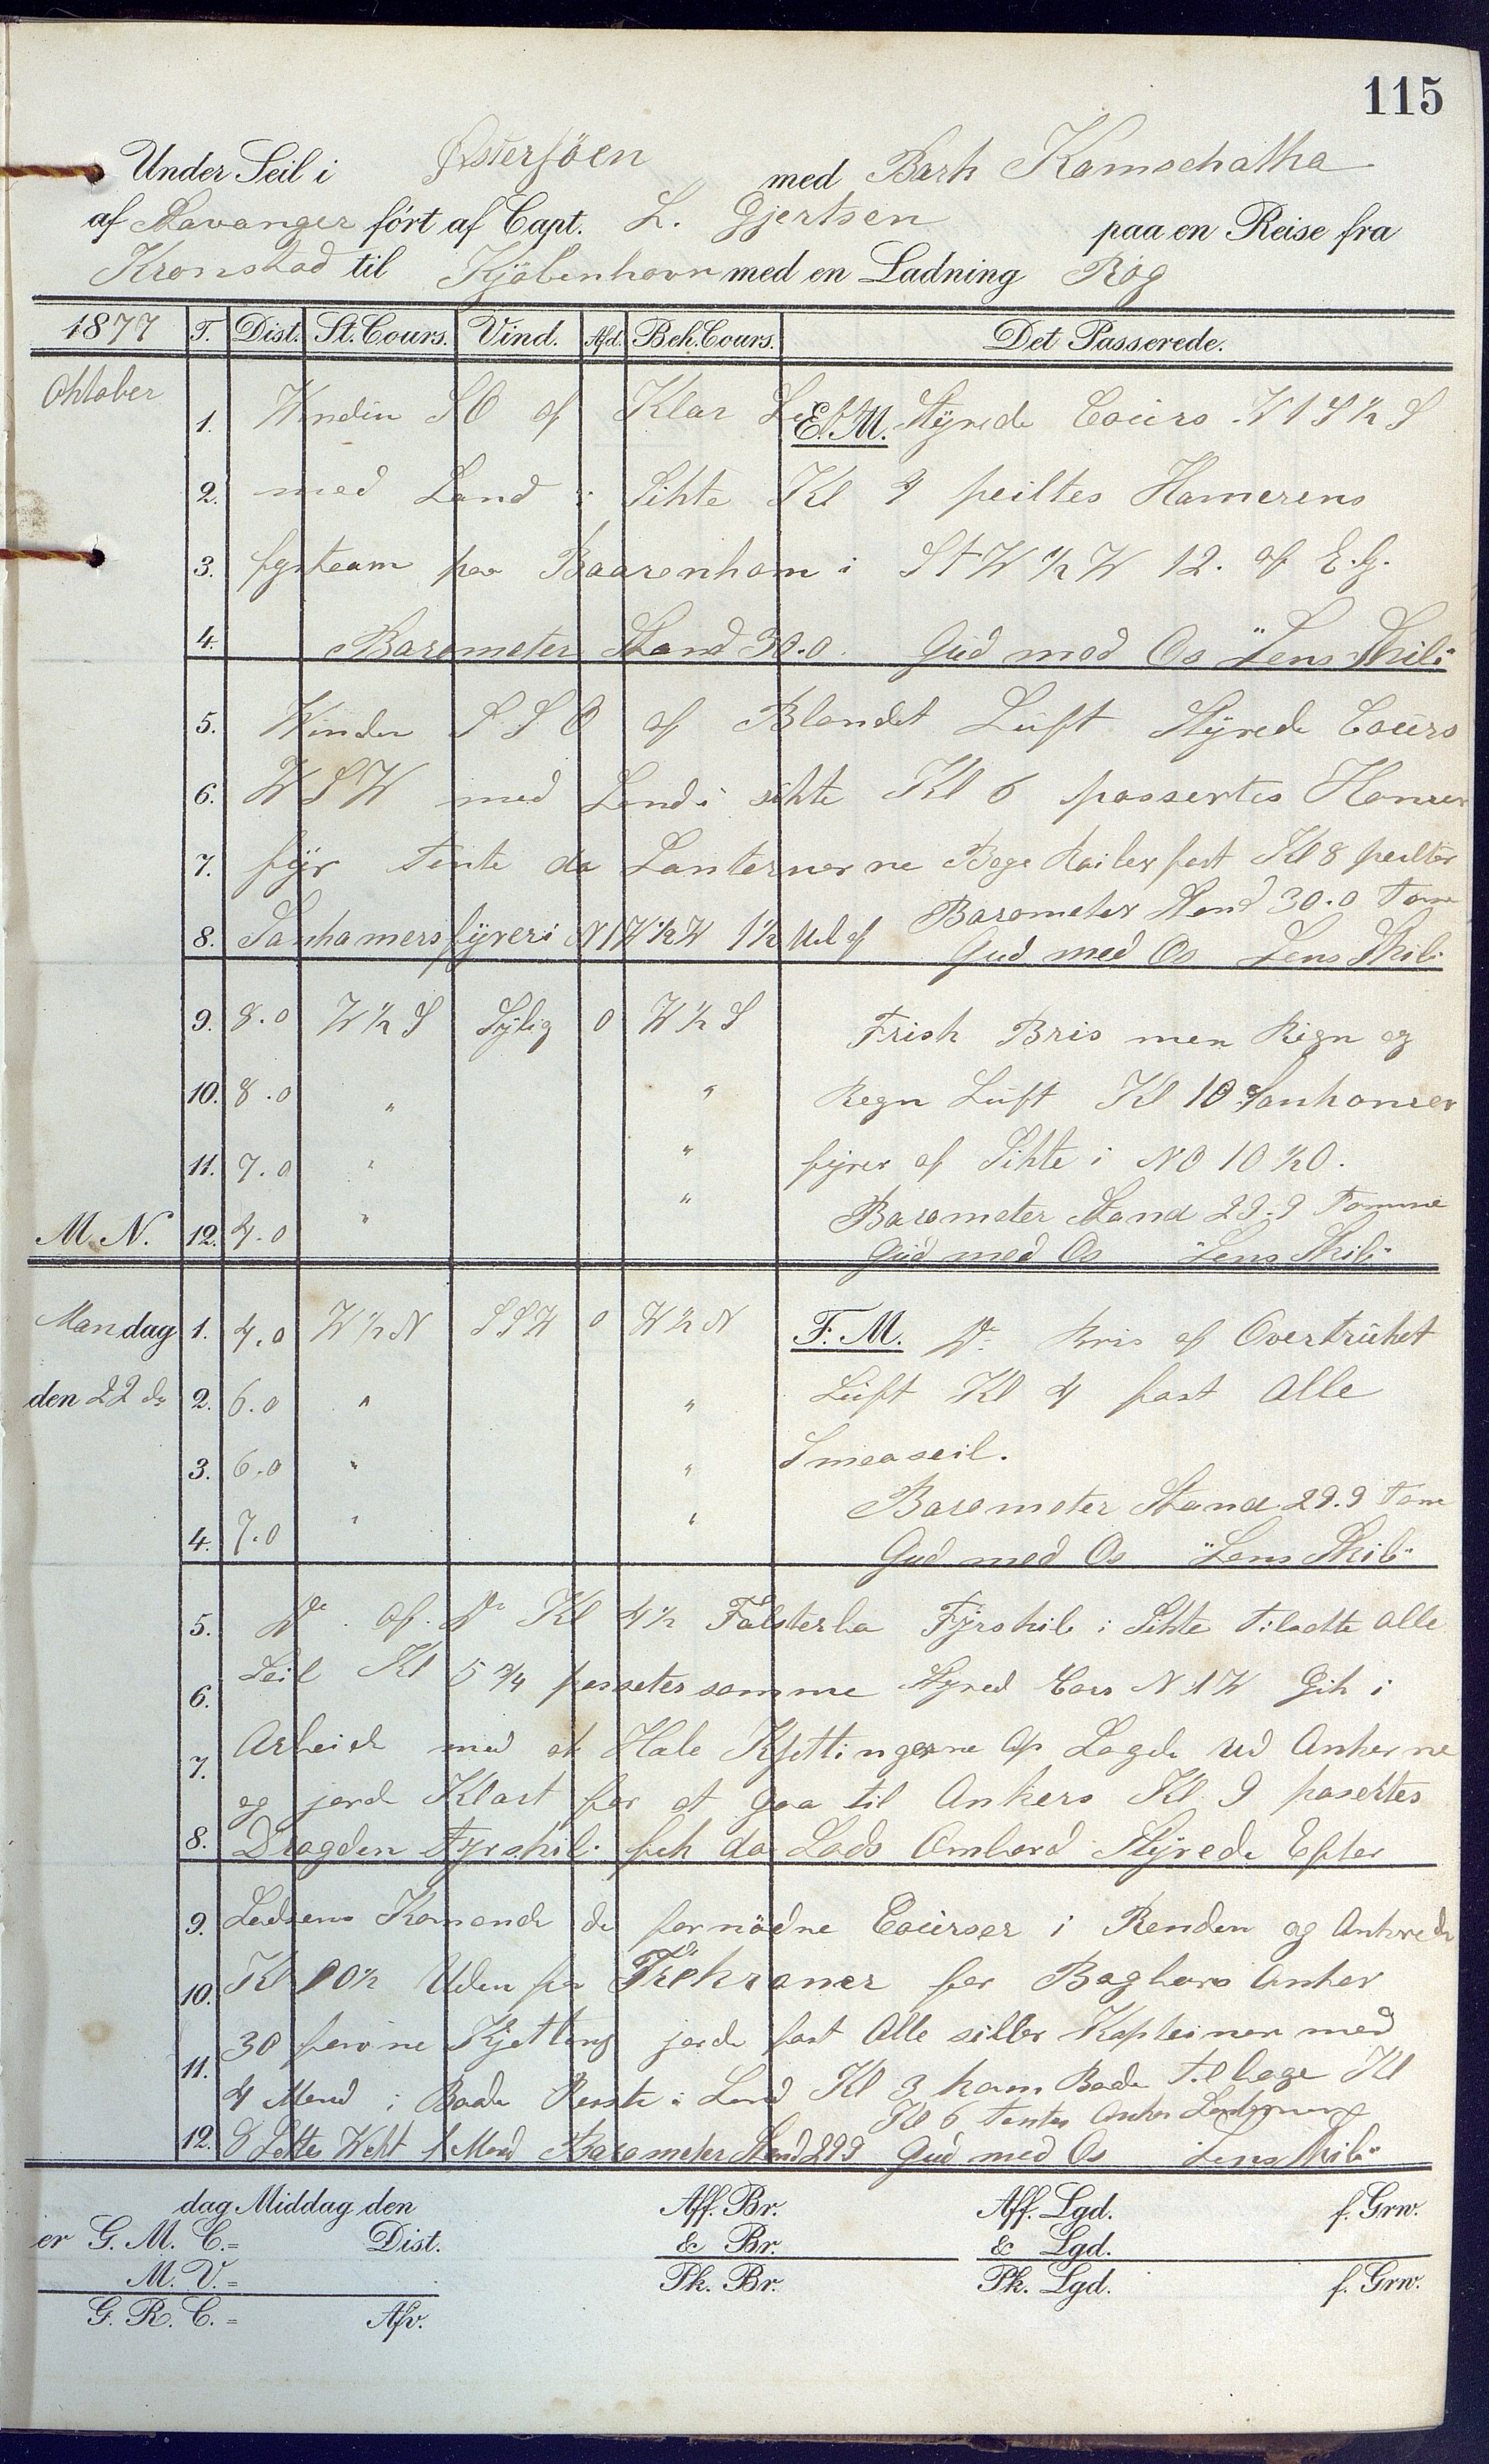 115
Under Seil i Østersöen med Bark Kamschatka
af Stavanger fört af Capt. L. Gjertsen paa en Reise fra
Kronstad til Kjöbenhavn med en Ladning Rog
1877 T. Dist. St. Cours. Vind. Afd. Beh. Cours. Det Passerede.
Oktober
1. Vinden SO af Klar E.M. Styrede Coürs W 1 S ½ S
2. med Land i Sikte Kl 9 peiltes Hamerens
3. paa i W ½ W 12. af E.G.
4. Barometer Stand 30.0. Gud med Os Lens Skib"
5. Vinden S S O af Blandet Lüft Styrede Coürs
6. W S W med Land i sikte Kl 6 passertes Hamer
7. fÿr tente da Lanternerne fast Kl 8 peilter
8. Sanhamers fÿrer i N 1 W ½ W 1½ Mil af Barometer Stand 30.0 Tom
Gud med Os Lens Skib
9. 8.0 W ½ S Sÿlig 0 W ½ S Frisk Bris men Regn og
10. 8.0 " " Regn Lüft Kl 10 Sanhamer
11. 7.0 " " fÿrer af Sikte i NO 10 ½ O.
M.N. 12. 4.0 " " Barometer Stand 29.9 Tomme
Gud med Os "Lens Skib"
Mandag 1. 4.0 W ½ N SSW 0 W ½ N F.M. Do Bris af Overtrükket
den 22 de 2. 6.0 " " Lüft Kl 4 fast Alle
3. 6.0 " " Smaaseil.
4. 7.0 " " Barometer Stand 29.9 Tom
Gud med Os "Lens Skib"
5. Do. af. Do Kl 4½ Falsterbo Fÿrskib i Sikte Tilsatte alle
6. Seil Kl 5 ¾ passetes samme Styred Cors N 1 W Gik i
7. Arbeide med at Hale Kjettingerne op Lagde ud Ankerne
og jorde Klart for at gaa til Ankers Kl 9 pasertes
8. Drogden Fyrskib. fik da Lods Ombord Styrede Efter
9. Lodsens Komande de fornödne Coürser i Renden og Ankrede
10. Kl 10½ Uden for Trekroner for Bagbors Anker
30 favne Kjetting jorde fast Alle siller Kapteinen med
11. 4 Mand i Baade Reiste i Land Kl 3 kom Bade Tilbage Kl
Kl 6 Tentes Anker Lanternen
12. 8 Settes Wakt 1 Mand Barometer Stand 29.9 Gud med Os Lens Skib"
dag Middag den Aff. Br. Aff. Lgd. f. Grw.
er G. M. C. = Dist. & Br. & Lgd.
M. V. = Pk. Br. Pk. Lgd. f. Grw.
G. R. C. = Afv.